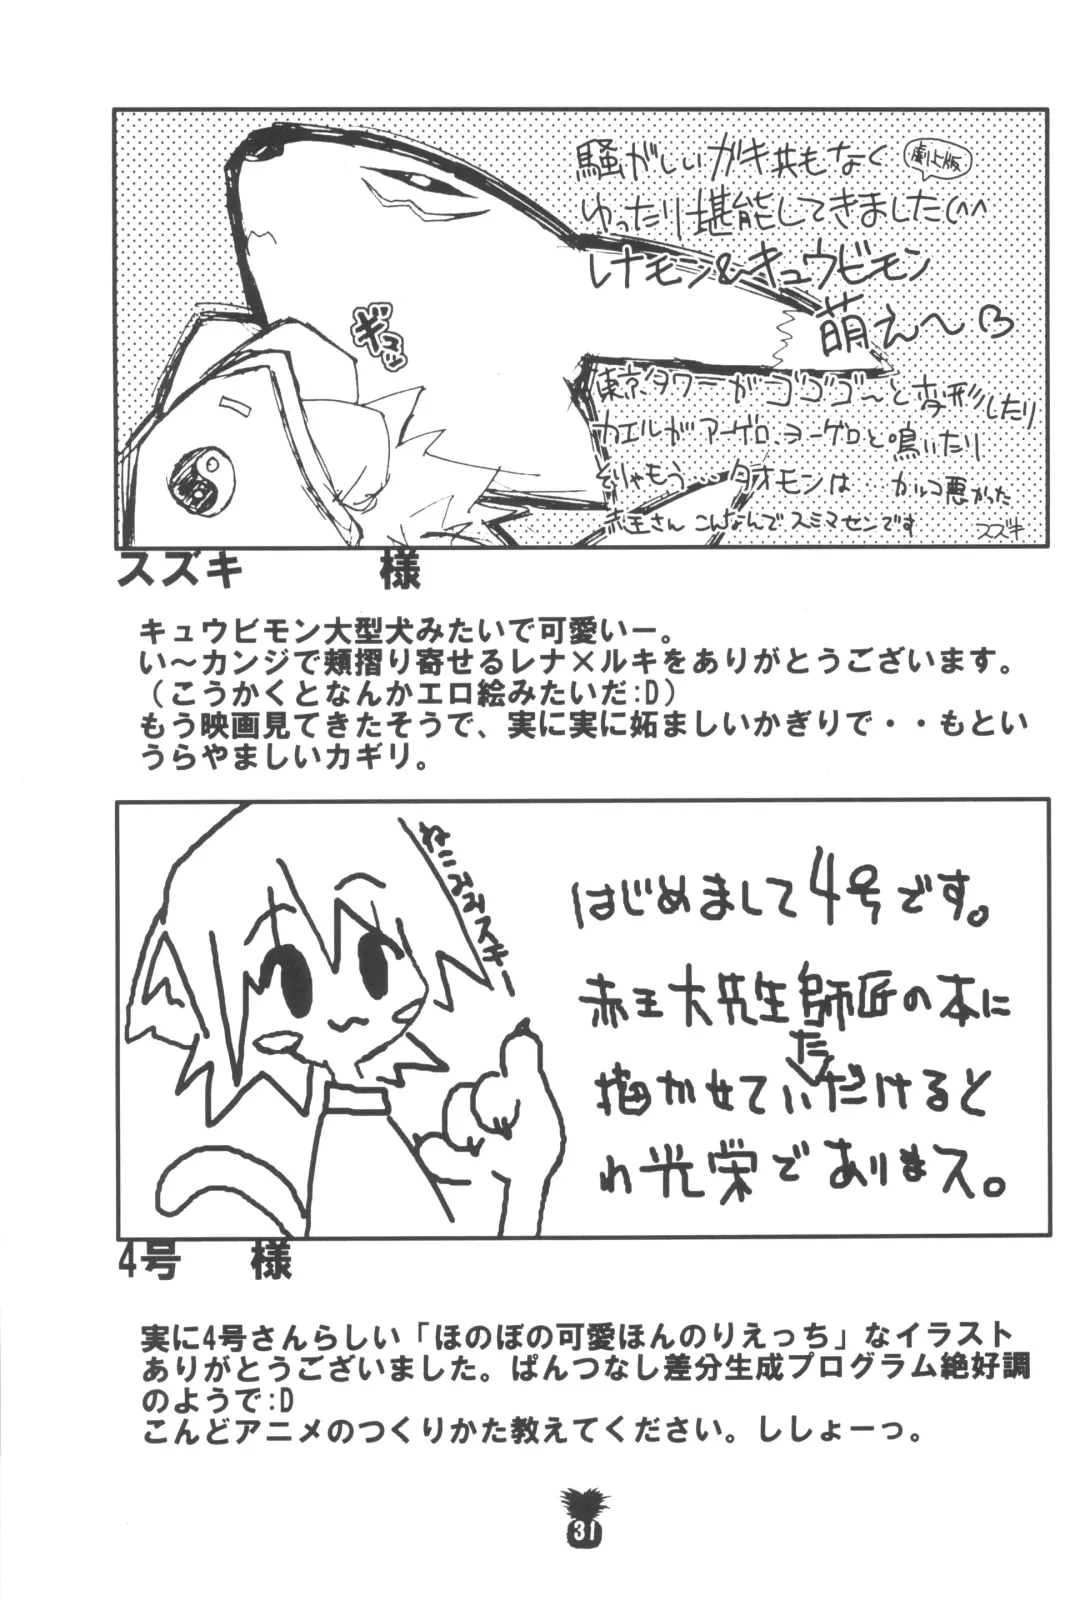 騒がしいガキ共もなく
劇上版
ゆったり堪能してきました(^^
レナモン&キュウビモン
萌え〜
ギュッ
東京タワーがゴゴゴ〜と変形したり
カエルがアーゲロ、ヨーゲロと鳴いたり
とりゃもう...タオモンは カッコ悪かった
赤王さん こんなんでスミマセンです
スズキ
スズキ 様
キュウビモン大型犬みたいで可愛いー。
い〜カンジで頬摺り寄せるレナ×ルキをありがとうございます。
（こうかくとなんかエロ絵みたいだ:D）
もう映画見てきたそうで、実に実に妬ましいかぎりで・・もとい
うらやましいカギリ。
ねこみみスキー
はじめまして4号です。
赤王大先生師匠の本に
描かせていただけると
わ光栄でありまス。
4号 様
実に4号さんらしい「ほのぼの可愛ほんのりえっち」なイラスト
ありがとうございました。ぱんつなし差分生成プログラム絶好調
のようで:D
こんどアニメのつくりかた教えてください。ししょーっ。
31